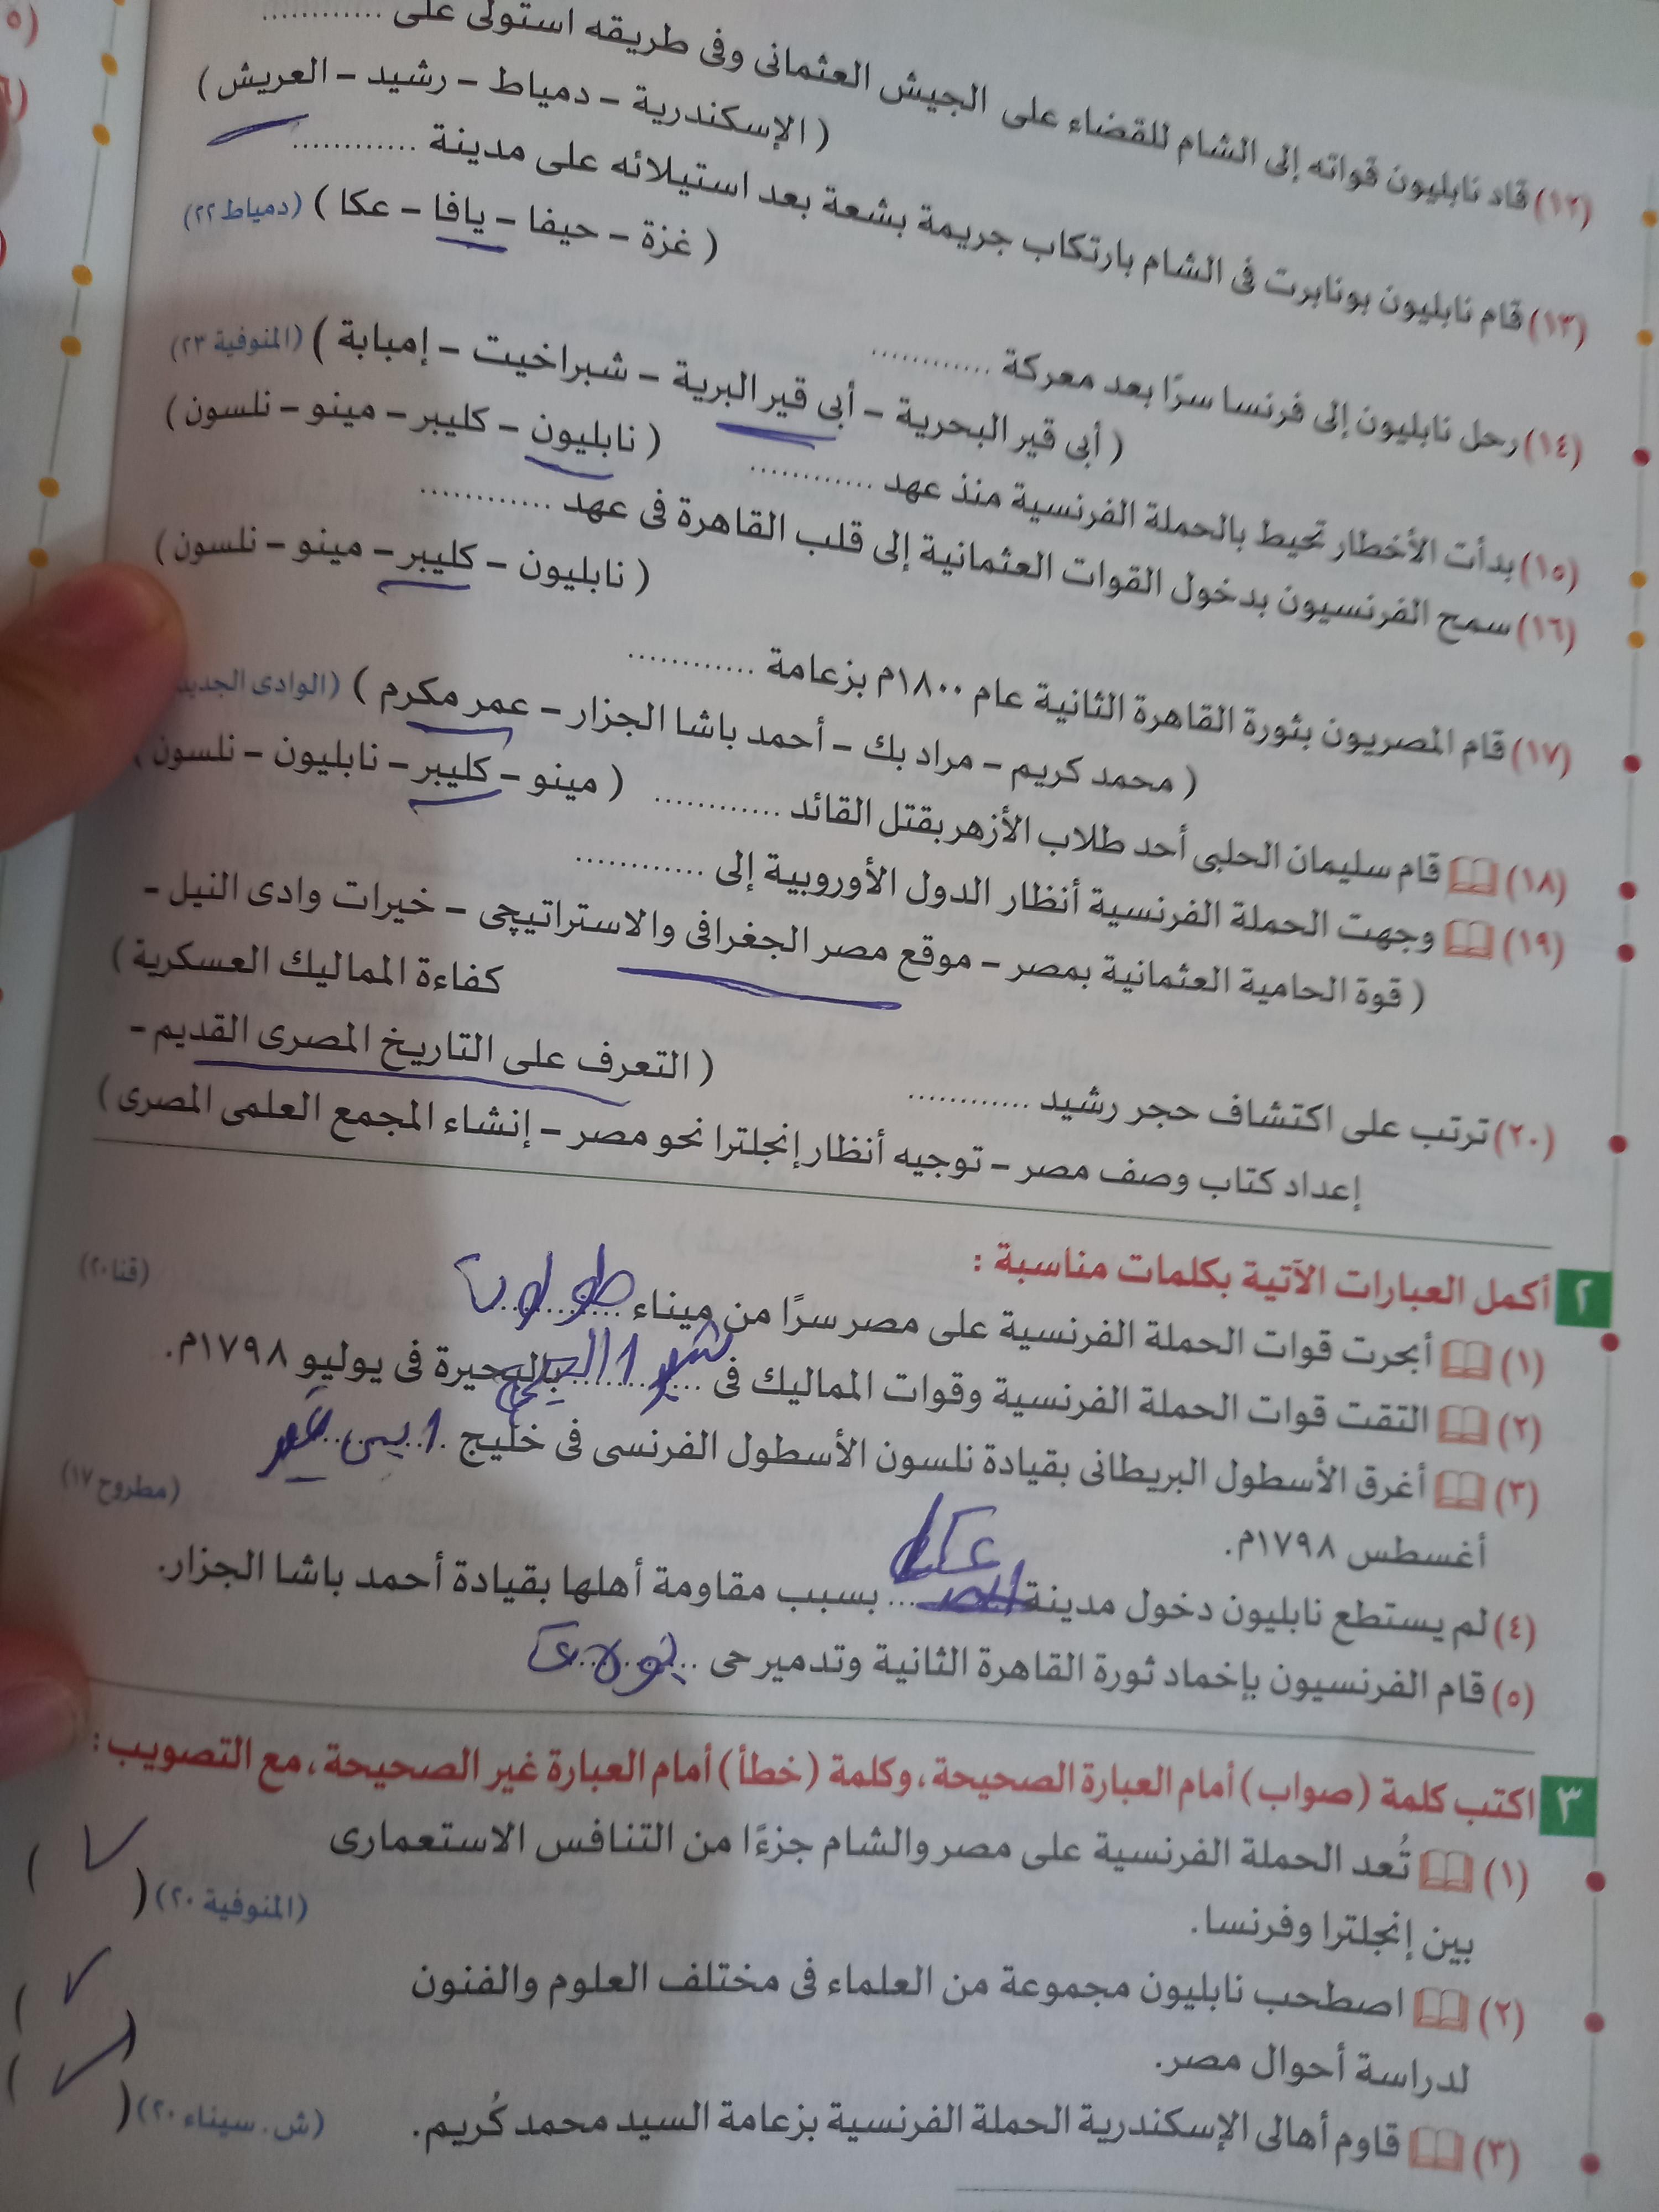 (١٢) قاد نابليون قواته إلى الشام للقضاء على الجيش العثمانى وفى طريقه استولى على ............
( الإسكندرية – دمياط – رشيد – العريش )
(١٣) قام نابليون بونابرت فى الشام بارتكاب جريمة بشعة بعد استيلائه على مدينة ............
( غزة – حيفا – يافا – عكا ) (دمياط ٢٢)
(١٤) رحل نابليون إلى فرنسا سرًا بعد معركة ............
( أبى قير البحرية – أبى قير البرية – شبراخيت – إمبابة ) (المنوفية ٢٣)
(١٥) بدأت الأخطار تحيط بالحملة الفرنسية منذ عهد ............ ( نابليون – كليبر – مينو – نلسون )
(١٦) سمح الفرنسيون بدخول القوات العثمانية إلى قلب القاهرة فى عهد ............
( نابليون – كليبر – مينو – نلسون )
(١٧) قام المصريون بثورة القاهرة الثانية عام ١٨٠٠م بزعامة ............
( محمد كريم – مراد بك – أحمد باشا الجزار – عمر مكرم ) (الوادى الجديد
(١٨) قام سليمان الحلبى أحد طلاب الأزهر بقتل القائد ............ ( مينو – كليبر – نابليون – نلسون )
(١٩) وجهت الحملة الفرنسية أنظار الدول الأوروبية إلى ............
( قوة الحامية العثمانية بمصر – موقع مصر الجغرافى والاستراتيچى – خيرات وادى النيل –
كفاءة المماليك العسكرية )
(٢٠) ترتب على اكتشاف حجر رشيد ............ ( التعرف على التاريخ المصرى القديم –
إعداد كتاب وصف مصر – توجيه أنظار إنجلترا نحو مصر – إنشاء المجمع العلمى المصرى )
٢ أكمل العبارات الآتية بكلمات مناسبة :
(١) أبحرت قوات الحملة الفرنسية على مصر سرًا من ميناء طولون (قنا ٢٠)
(٢) التقت قوات الحملة الفرنسية وقوات المماليك فى ............ بالبحيرة فى يوليو ١٧٩٨م.
(٣) أغرق الأسطول البريطانى بقيادة نلسون الأسطول الفرنسى فى خليج ابى قير
أغسطس ١٧٩٨م. (مطروح ١٧)
(٤) لم يستطع نابليون دخول مدينة عكا بسبب مقاومة أهلها بقيادة أحمد باشا الجزار.
(٥) قام الفرنسيون بإخماد ثورة القاهرة الثانية وتدمير حى بولاق
٣ اكتب كلمة (صواب) أمام العبارة الصحيحة، وكلمة (خطأ) أمام العبارة غير الصحيحة، مع التصويب:
(١) تُعد الحملة الفرنسية على مصر والشام جزءًا من التنافس الاستعمارى
بين إنجلترا وفرنسا. (المنوفية ٢٠) ( ✓ )
(٢) اصطحب نابليون مجموعة من العلماء فى مختلف العلوم والفنون
لدراسة أحوال مصر. ( ✓ )
(٣) قاوم أهالى الإسكندرية الحملة الفرنسية بزعامة السيد محمد كُريم. (ش. سيناء ٢٠) ( ✓ )